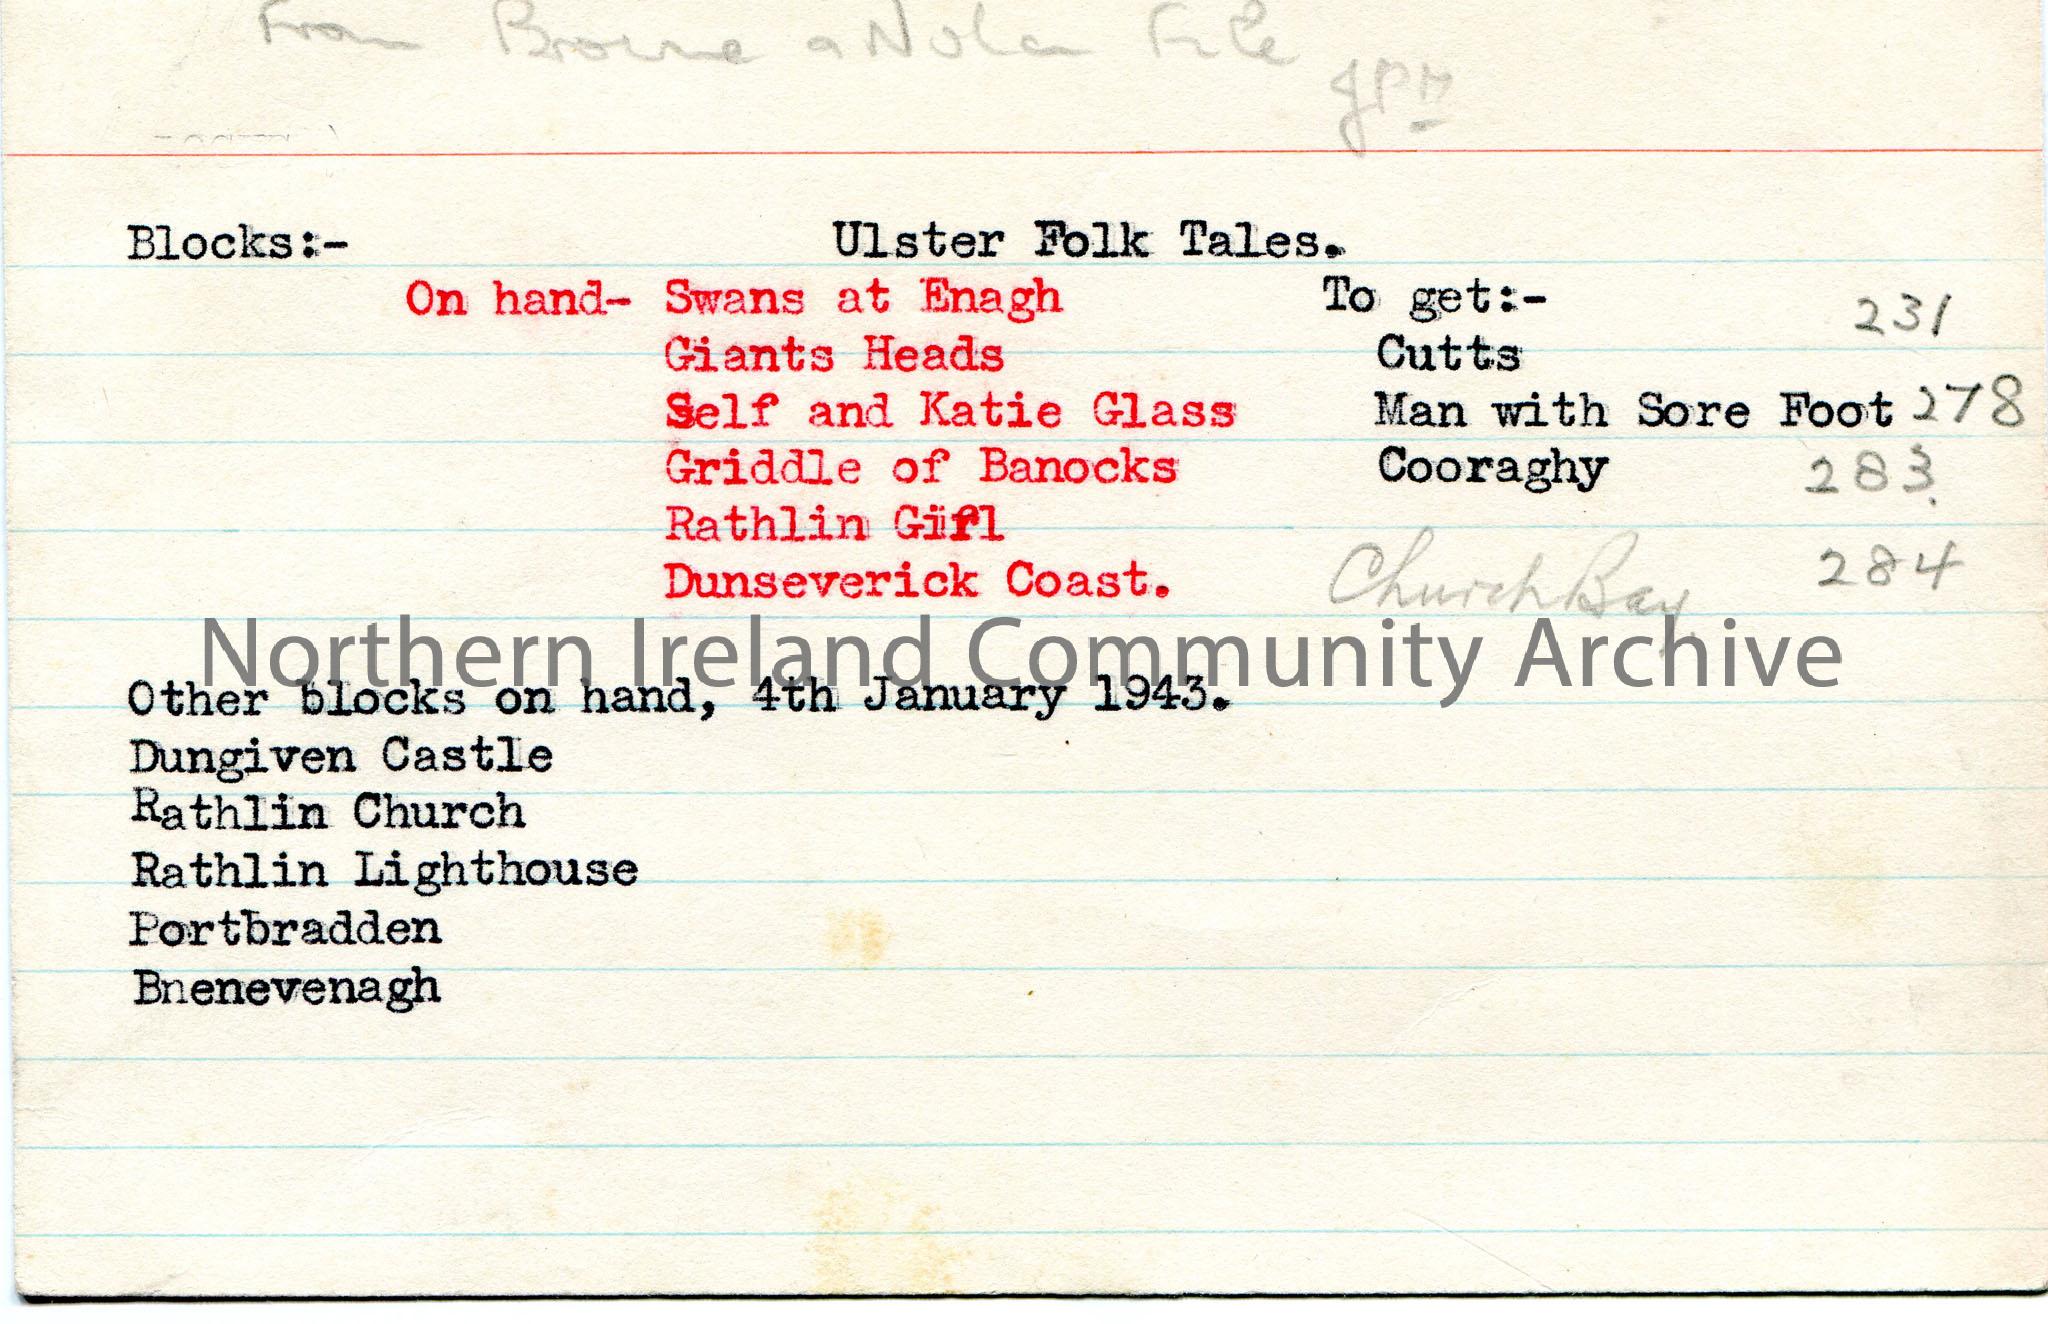 From Browne a Nolan File
JPM
Blocks:- Ulster Folk Tales.
On hand- Swans at Enagh To get:- 231
Giants Heads Cutts
Self and Katie Glass Man with Sore Foot 278
Griddle of Banocks Cooraghy 283.
Rathlin Girl
Dunseverick Coast. Church Bay 284
Northern Ireland Community Archive
Other blocks on hand, 4th January 1943.
Dungiven Castle
Rathlin Church
Rathlin Lighthouse
Portbradden
Bnenevenagh